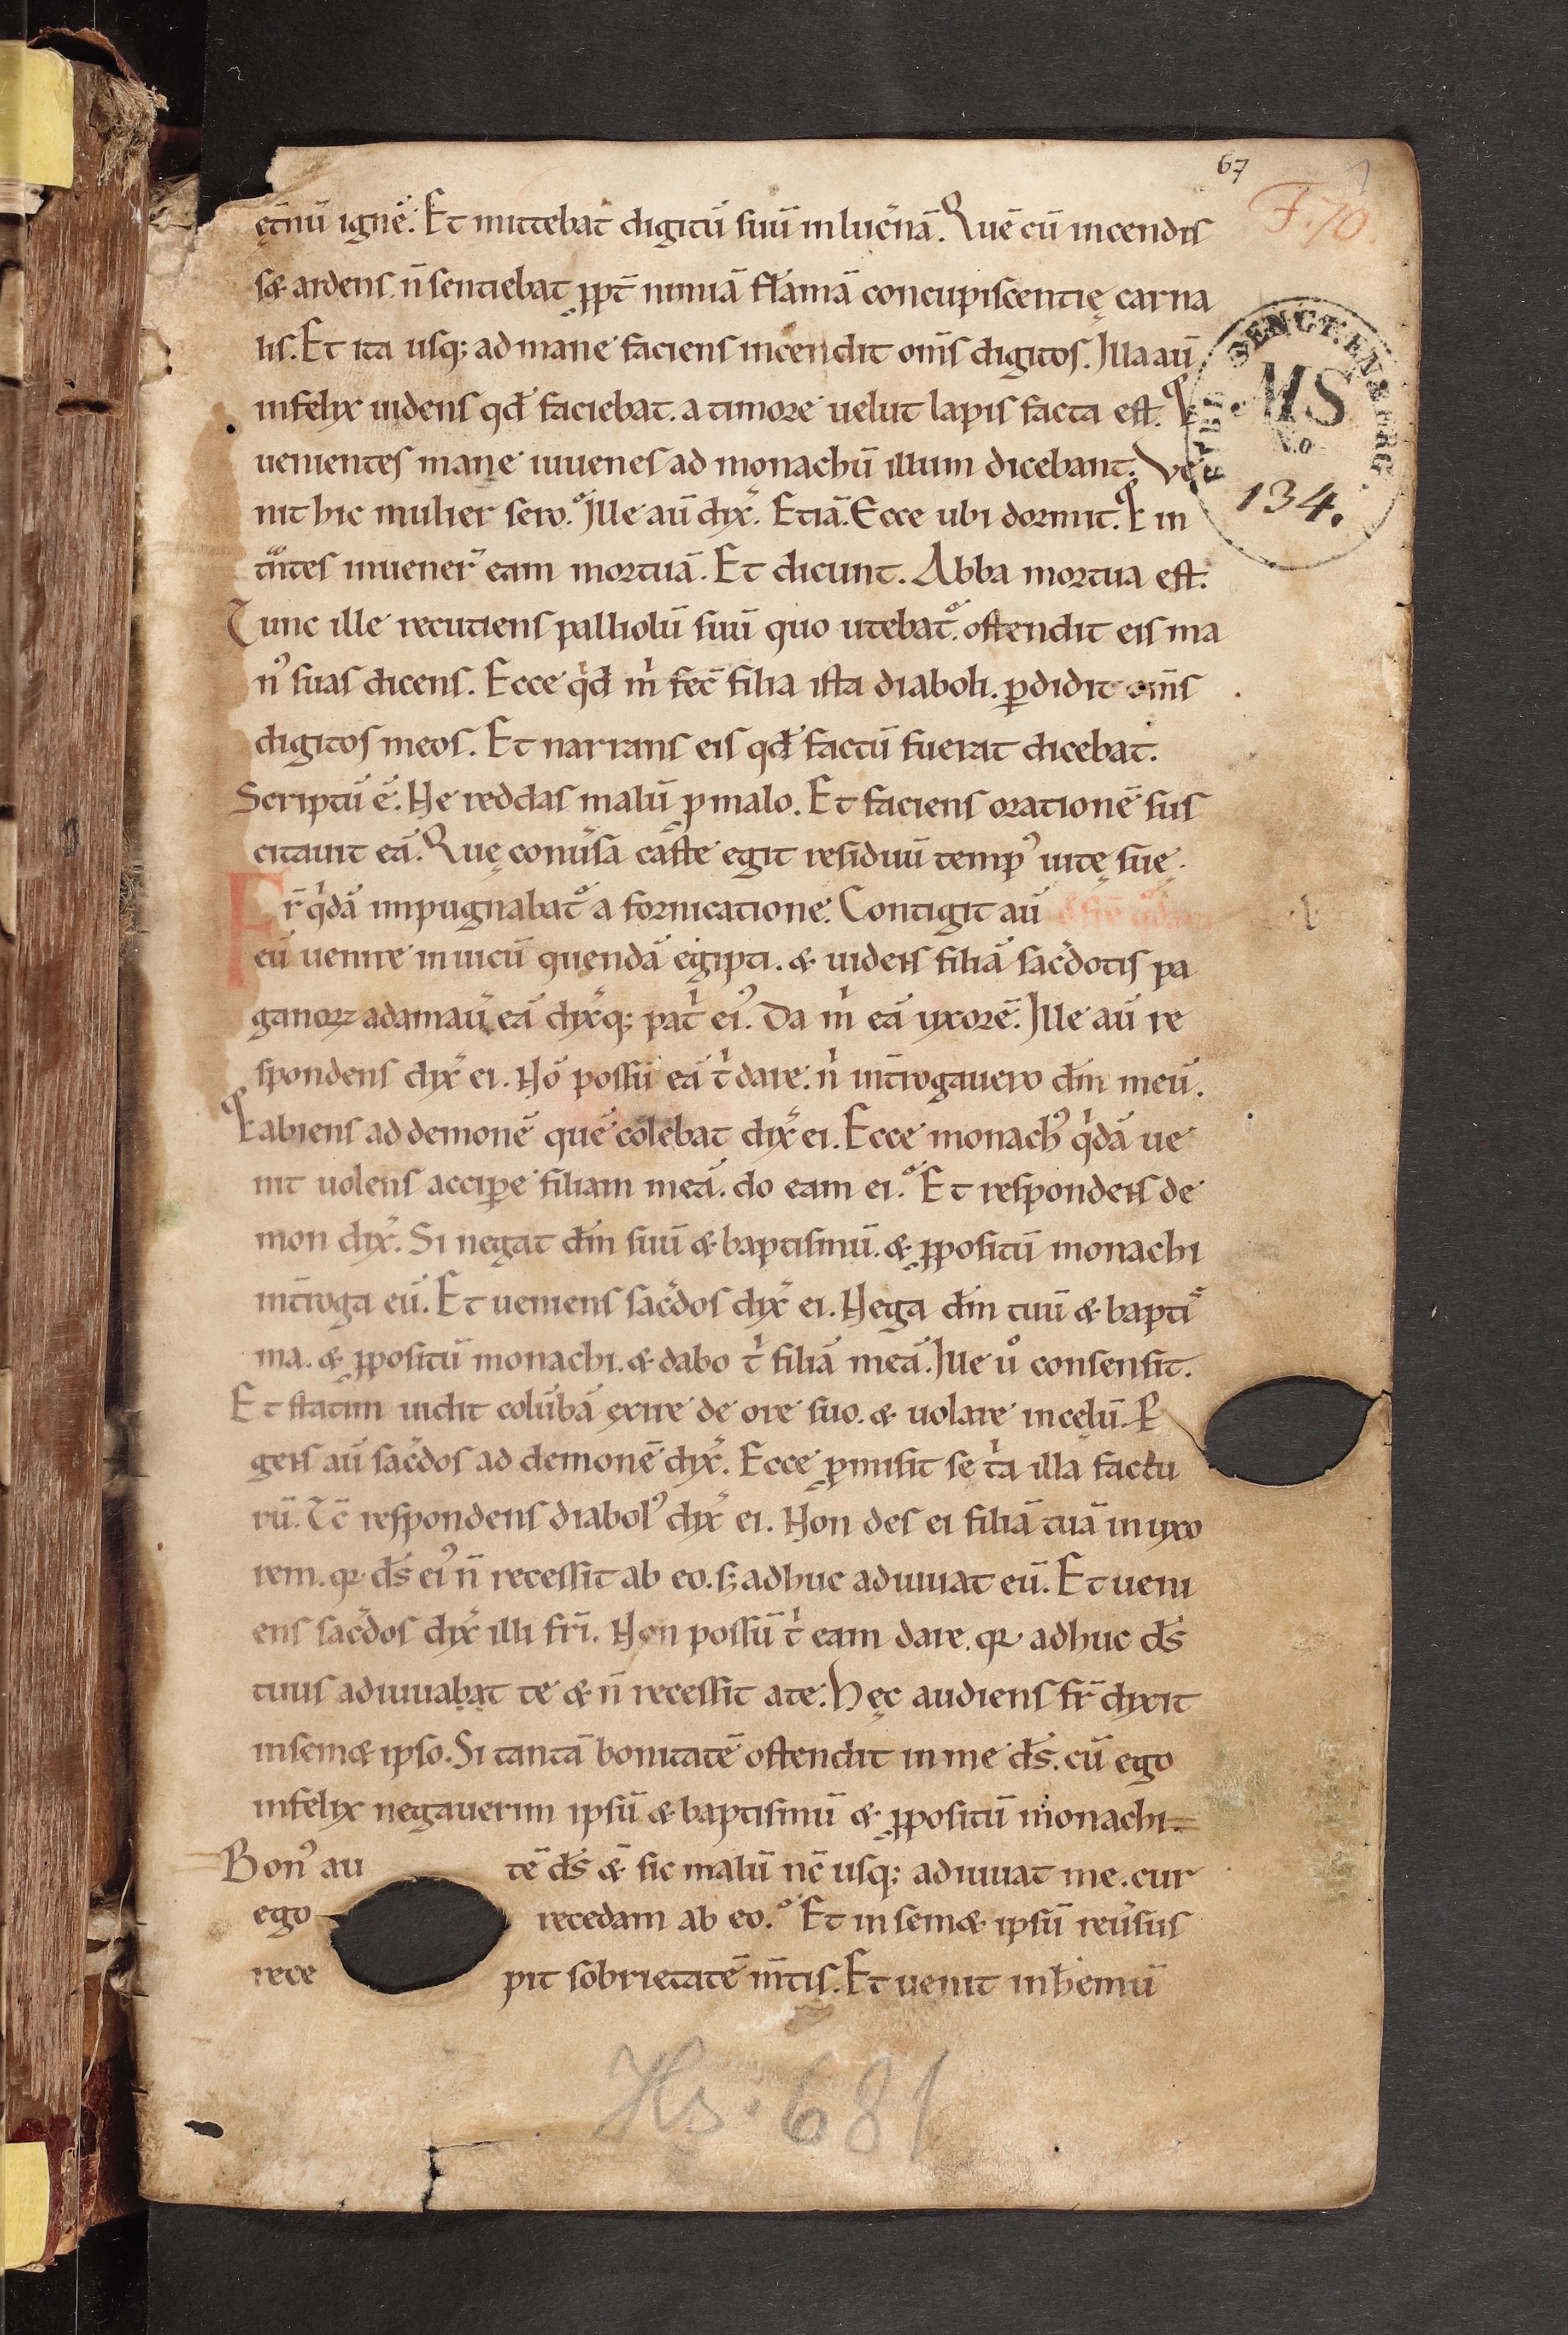 67
F. 70.
ęt̄nū ignē. Et mittebat digitū suū in luc̄nā. Quē cū incendis
s& ardens. n̄ sentiebat ꝓpt̄ nimiā flāmā concupiscentię carna
lis. Et ita usq; ad mane faciens incendit om̄s digitos. Illa aū
infelix uidens qđ faciebat. a timore uelut lapis facta est. &
uenientes mane iuuenes ad monachū illum dicebant. Ve
nit hic mulier sero. Ille aū dix̄. Etiā. Ecce ubi dormit. & in
t̄ntes inuener̄ eam mortuā. Et dicunt. Abba mortua est.
Tunc ille recutiens palliolū suū quo utebat̄. ostendit eis ma
n᾽ suas dicens. Ecce qͥd m̄ fec̄ filia ista diaboli. ꝑdidit om̄s
digitos meos. Et narrans eis qđ factū fuerat dicebat.
Scriptū ē. Ne reddas malū ꝓ malo. Et faciens orationē sus
citauit eā. Quę conūsa caste egit residuū temp᾽ uitę suę.
Fr̄ qͥdā impugnabat̄ a fornicatione. Contigit aū
eū uenire in uicū quendā egipti. & uidens filiā sac̄dotis pa
ganoꝝ adamau̅ eā dix̄q; pat̄ ei᾽. Da m̄ eā uxorē. Ille aū re
spondens dix̄ ei. Nō possū eā t̄ dare. n̄ int̄rogauero dn̄m meū.
& abiens ad demonē quē colebat dix̄ ei. Ecce monach᾽ qͥdā ue
nit uolens accipe filiam meā. do eam ei. Et respondens de
mon dix̄. Si negat dn̄m suū & baptismū. & ꝓpositū monachi
int̄roga eū. Et ueniens sac̄dos dix̄ ei. Nega dn̄m tuū & baptis
ma. & ꝓpositū monachi. & dabo t̄ filiā meā. Ille uͦ consensit.
Et statim uidit colūbā exire de ore suo. & uolare in cęlū. P
gens aū sac̄dos ad demonē dix̄. Ecce ꝓmisit se tͥa illa factu
rū. Tc̄ respondens diabol᾽ dix̄ ei. Non des ei filiā tuā in uxo
rem. qꝛ ds̄ ei᾽ n̄ recessit ab eo. sꝫ adhuc adiuuat eū. Et ueni
ens sac̄dos dix̄ illi fr̄i. Non possū t̄ eam dare. qꝛ adhuc ds̄
tuus adiuuabat te & n̄ recessit a te. Hęc audiens fr̄ dixit
in sem& ipso. Si tantā bonitatē ostendit in me ds̄. cū ego
infelix negauerim ipsū & baptismū & ꝓpositū monachi
Bon᾽ au tē ds̄ & sic malū nc̄ usq; adiuuat me. cur
ego recedam ab eo. Et in sem& ipsū reu̅sus
rece pit sobrietatē m̄tis. Et uenit in hemū
MS
No
134.
Hs. 681